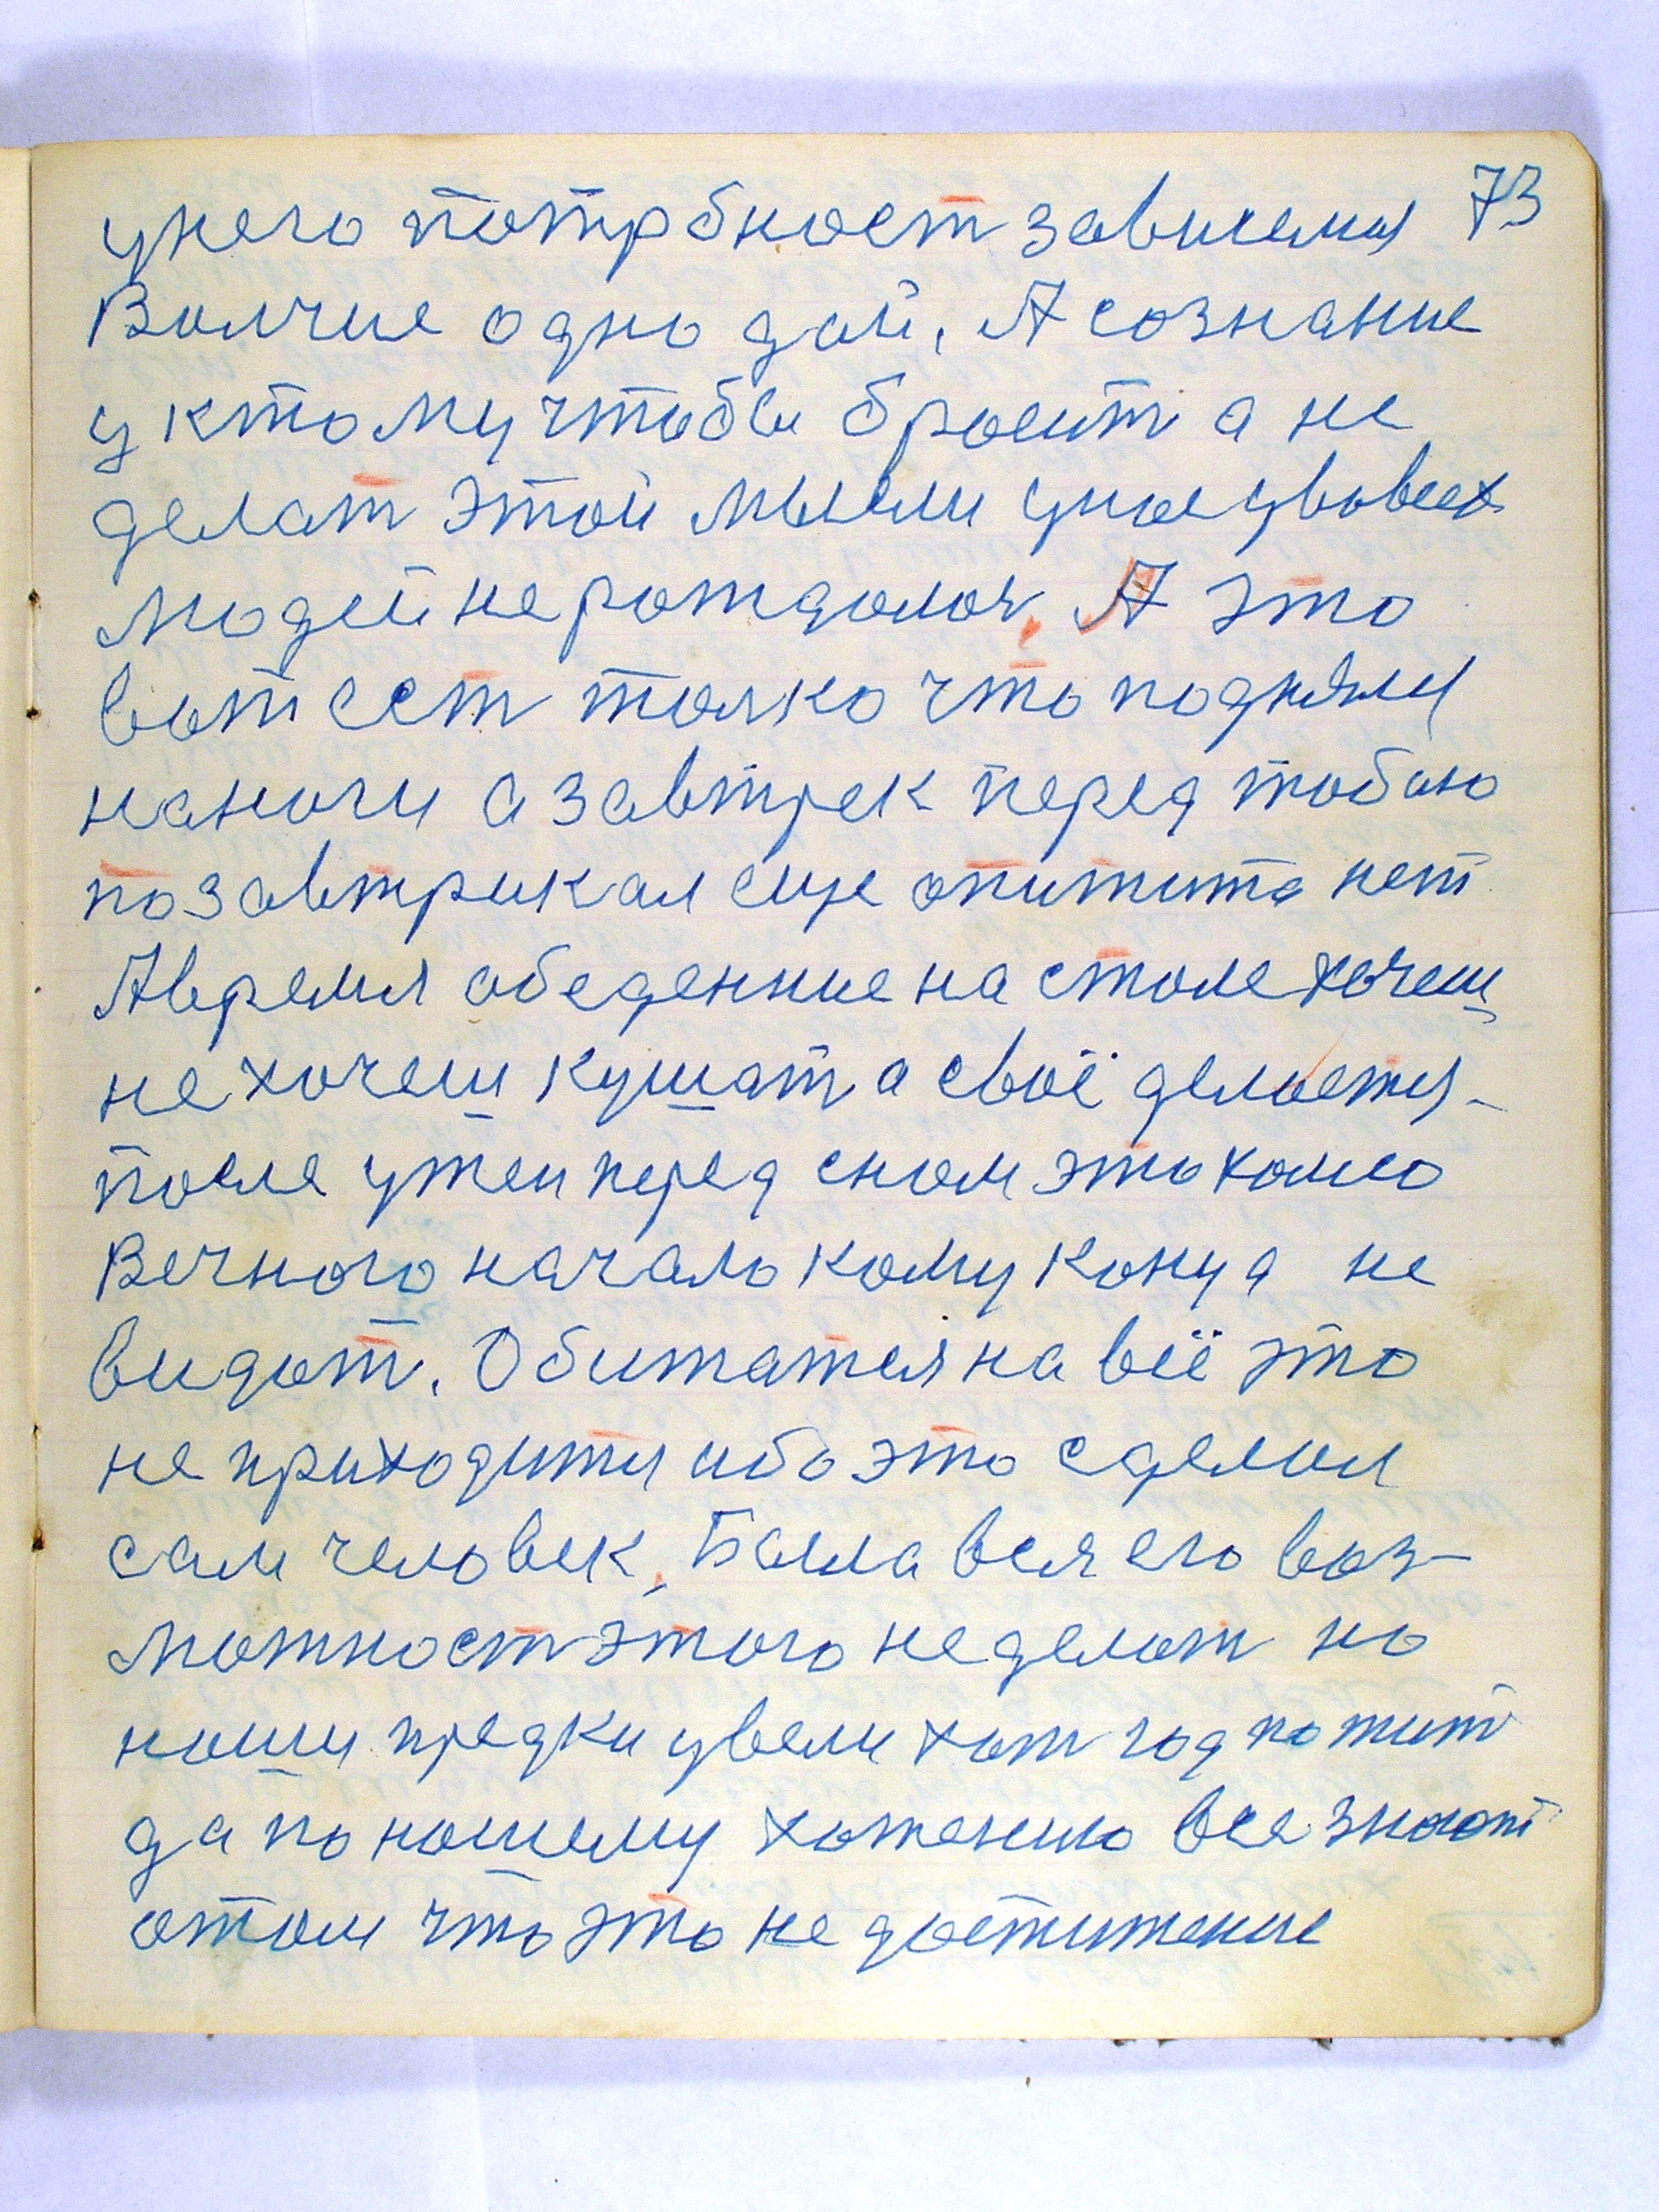 73
унего потрбност зависемая
Волчие одно дай. А сознание
у ктому чтобы бросит а не
делат этой мысли унас увовсех
людей не рождалас. А это
вот ест толко что поднялся
наноги а завтрек перед тобою
позавтрикал еще апитита нет
Авремя обеденние на столе хочеш
не хочеш кушат а своё делается
после ужен перед сном это
Вечного начало кому конца не
видат. Обижатся на всё это
не приходится ибо это сделал
сам человек, Была вся его воз-
можност этого неделат но
наши предки увели хот год пожит
да по нашему хотению все знают
отом что это не достижение